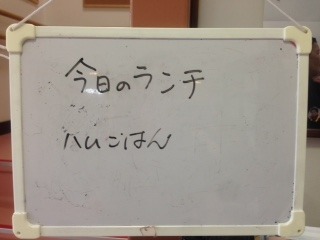 今日のランチ
ハムごはん